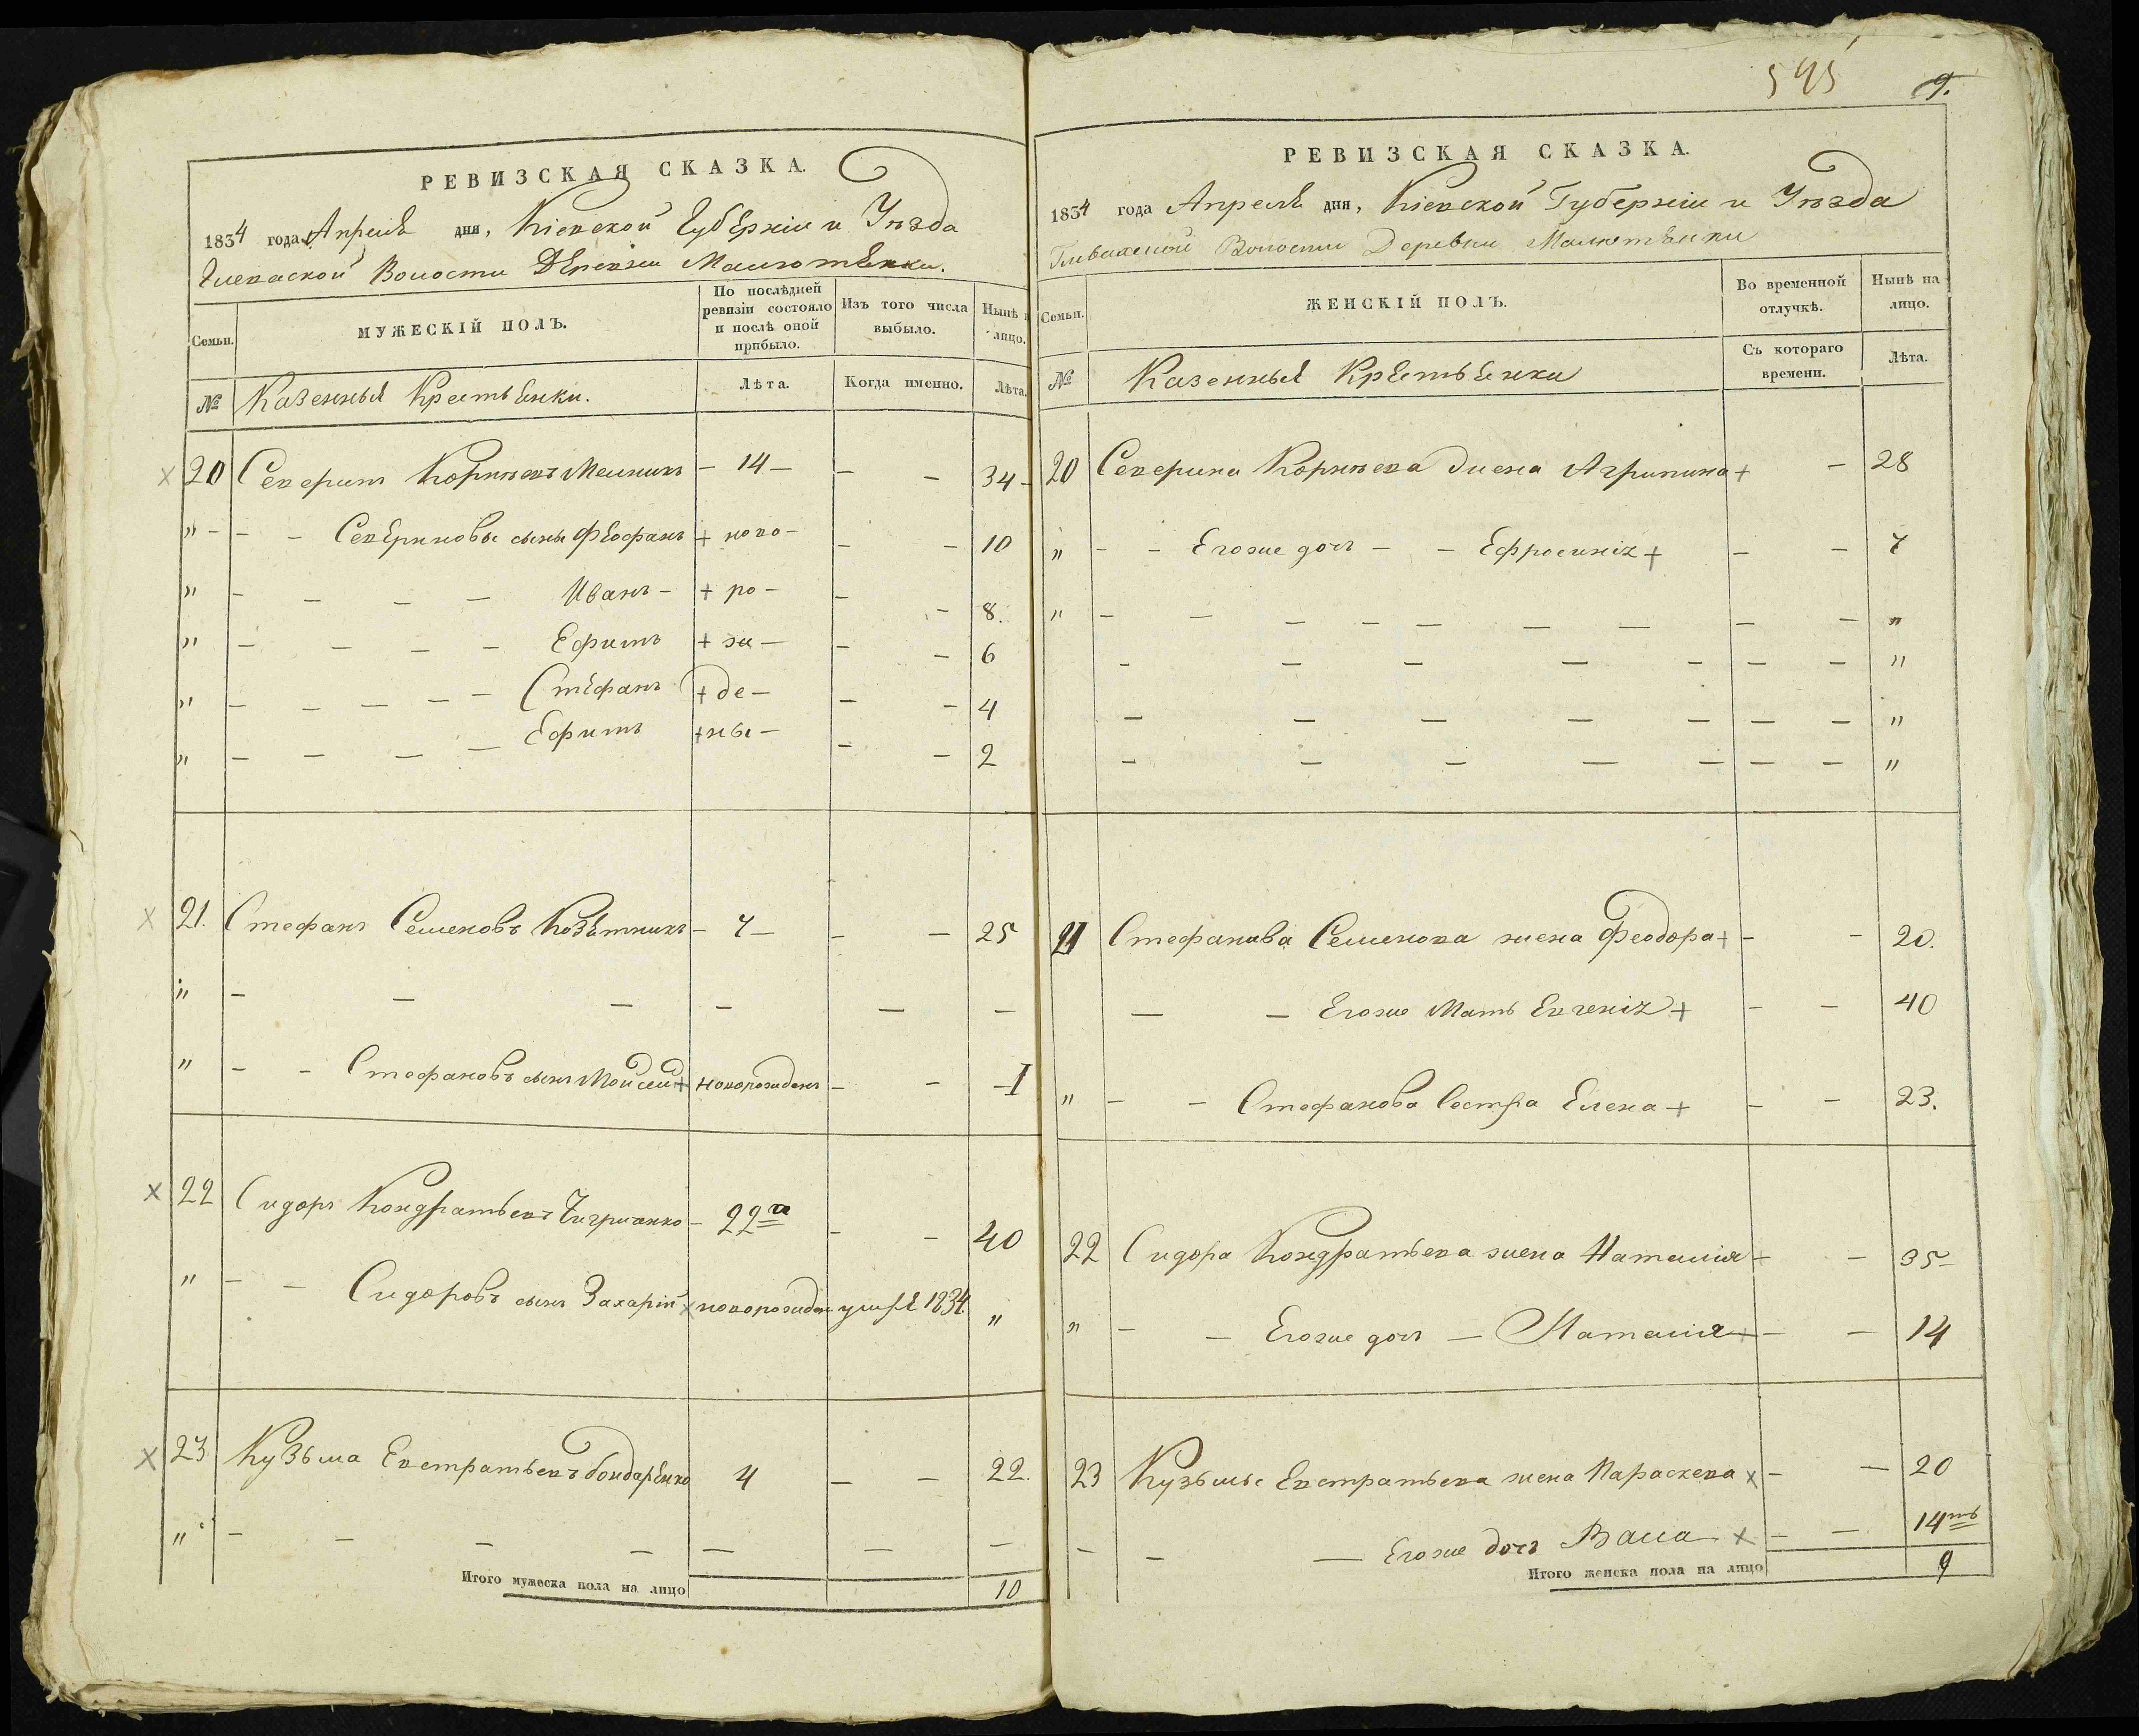 РЕВИЗСКАЯ СКАЗКА.
1834 года Апреля дня, Кіевской Губерніи и Уѣзда
Глеваской Волости Деревни Малютенки.
Семьи.
МУЖЕСКІЙ ПОЛЪ.
По послѣдней ревизіи состояло и послѣ оной прибыло.
Изъ того числа выбыло.
Нынѣ на лицо.
№
Казенныя Крестьянки.
Лѣта.
Когда именно.
Лѣта.
20 Северинъ Корнѣевъ Мелникъ - 14 - - - 34 -
" - - - Севериновы сыны Феофанъ + ново - - - 10
" - - - - Иванъ - + ро - - - 8.
" - - - - Ефимъ + жи - - - 6
" - - - - - Стефанъ + де - - - 4
" - - - - Ефимъ + ны - - - 2
21. Стефанъ Семеновъ - 7 - - - 25
" - - - - - -
" - - Стефановъ сынъ Мойсей + новорожденъ - - - 1
22 Сидоръ Кондратьевъ - 22а - - 40
" - - Сидоровъ сынъ Захарій x новорожден умре 1834. "
23 Кузьма Евстратьевъ Бондаренко 4 - - 22.
" - - - - - - -
Итого мужеска пола на лицо 10
545 9.
РЕВИЗСКАЯ СКАЗКА.
1834 года Апреля дня, Кіевской Губерніи и Уѣзда
Глеваской Волости Деревни Малютенки
Семьи.
ЖЕНСКІЙ ПОЛЪ.
Во временной отлучкѣ.
Нынѣ на лицо.
№
Казенныя Крестьянки
Съ котораго времени.
Лѣта.
20 Северина Корнѣева жена Агрипина + - 28
" - - Егоже дочь - - Ефросинія + - - 7
" - - - - - - - - - "
- - - - - - - "
- - - - - - - "
- - - - - - - "
21 Стефанива Семенова жена Феодора + - - 20.
- - Егоже Мать Евгенія + - - 40
" - - Стефанова Сестра Елена + - - 23.
22 Сидора Кондратьева жена Наталія + - 35 -
" - - Егоже дочь - Наталія + - - 14
23 Кузьмы Евстратьева жена Параскева x - - 20
- - - Егоже дочь x - - 14
Итого женска пола на лицо 9